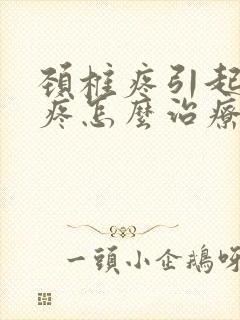 頚椎疼引起
疼怎麼治療
一頭小企鵝呀